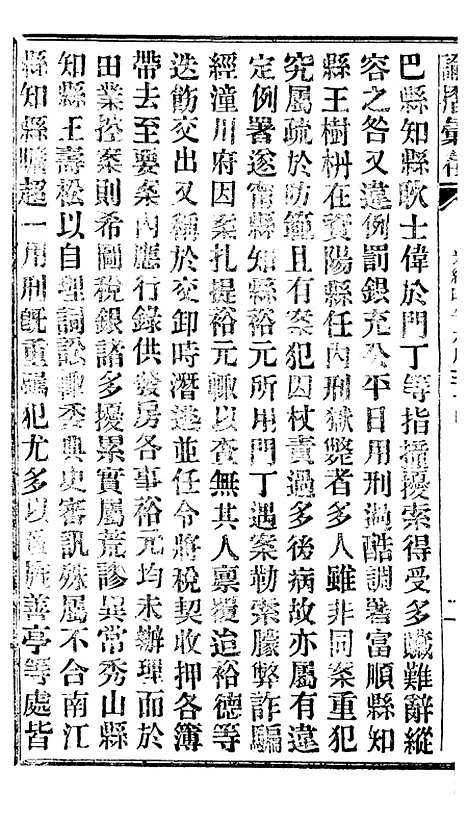 諭摺彙存
巴縣知縣耿士偉於門丁等指撞擾索得受多贓難辭縱
容之咎又違例罰銀充公平日用刑過酷調署富順縣知
縣王樹枬在資陽縣任內刑獄斃者多人雖非同案重犯
究屬疏於防範且有案犯因杖責過多後病故亦屬有違
定例署遂甯縣知縣裕元所用門丁遇案勒索朦弊詐騙
經潼川府因案札提裕元輒以查無其人稟覆迨裕德等
迭飭交出又稱於交卸時潛逃並任令將稅契收押各簿
帶去至要案內應行錄供發房各事裕元均未辦理而於
田業控案則希圖稅銀諸多擾累實屬荒謬異常秀山縣
知縣王壽松以自理詞訟輒委典史審訊殊屬不合南江
縣知縣 超一用刑旣重 犯尤多以 善亭等處皆